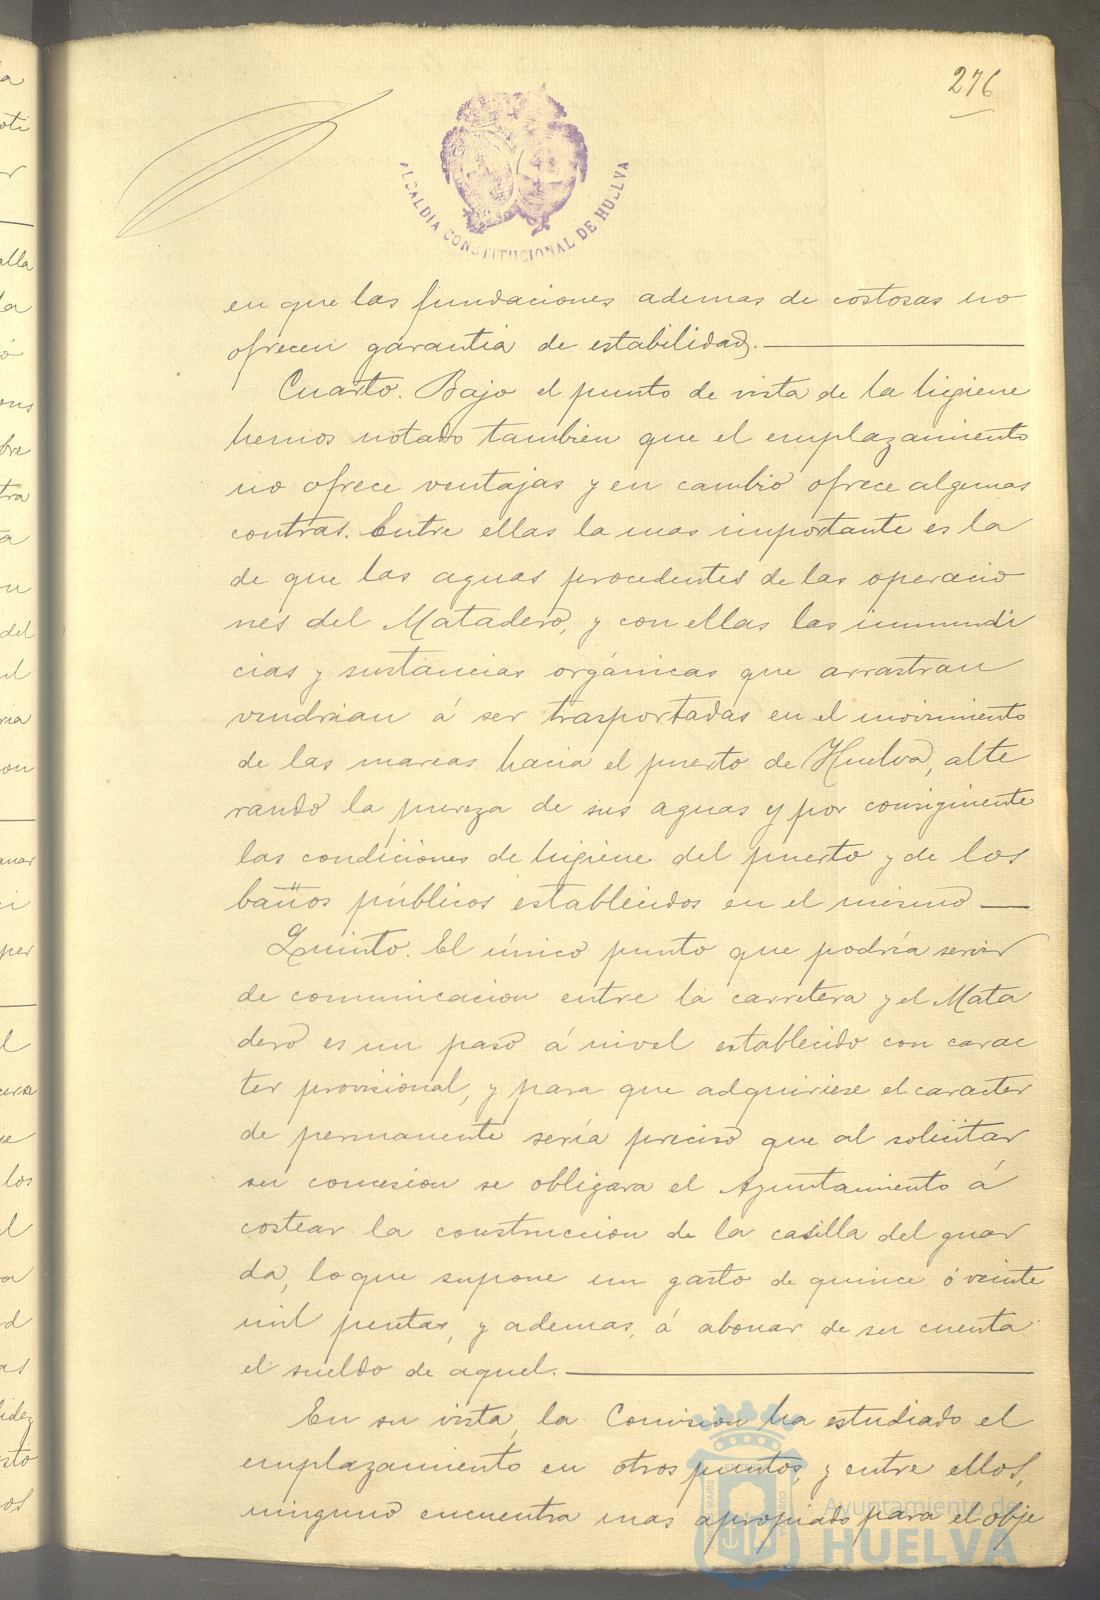 276
ALCALDIA CONSTITUCIONAL DE HUELVA
en que las fundaciones ademas de costosas no
ofrecen garantia de estabilidad.
Cuarto. Bajo el punto de vista de la higiene
hemos notado tambien que el emplazamiento
no ofrece ventajas y en cambio ofrece algunas
contras. Entre ellas la mas importante es la
de que las aguas procedentes de las operacio
nes del Matadero, y con ellas las inmundi
cias y sustancias orgánicas que arrastran
vendrian á ser trasportadas en el movimiento
de las mareas hacia el puerto de Huelva, alte
rando la pureza de sus aguas y por consiguiente
las condiciones de higiene del puerto y de los
baños públicos establecidos en el mismo
Quinto. El único punto que podría servir
de comunicacion entre la carretera y el Mata
dero es un paso á nivel establecido con carac
ter provisional, y para que adquiriese el caracter
de permanente sería preciso que al solicitar
su concesion se obligara el Ayuntamiento á
costear la construccion de la casilla del guar
da, lo que supone un gasto de quince ó veinte
mil pesetas, y ademas, á abonar de su cuenta
el sueldo de aquel.
En su vista, la Comision ha estudiado el
emplazamiento en otros puntos, y entre ellos,
ninguno encuentra mas apropiado para el obje
Ayuntamiento de
HUELVA